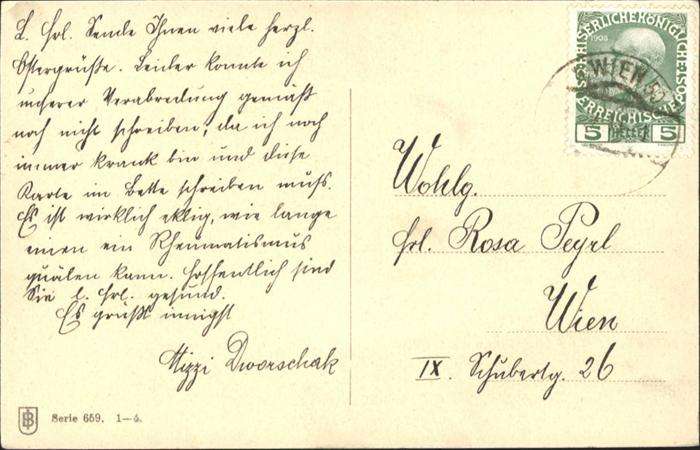 L. Frl. Sende Ihnen viele herzl.
Ostergrüße. Leider konnte ich
unserer Verabredung gemäß
noch nicht schreiben, da ich noch
immer krank bin und diese
Karte im Bette schreiben muß.
Es ist wirklich eklig, wie lange
einen ein Rheumatismus
quälen kann. Hoffentlich sind
Sie l. Frl. gesund.
Es grüßt innigst
Mizzi Dworschak
Serie 659. 1–6.
KAISERLICHE KÖNIGLICHE
ÖSTERREICHISCHE
POST
1908
5 HELLER 5
WIEN
Wohlg.
Frl. Rosa Peyrl
Wien
IX. Schubertg. 26